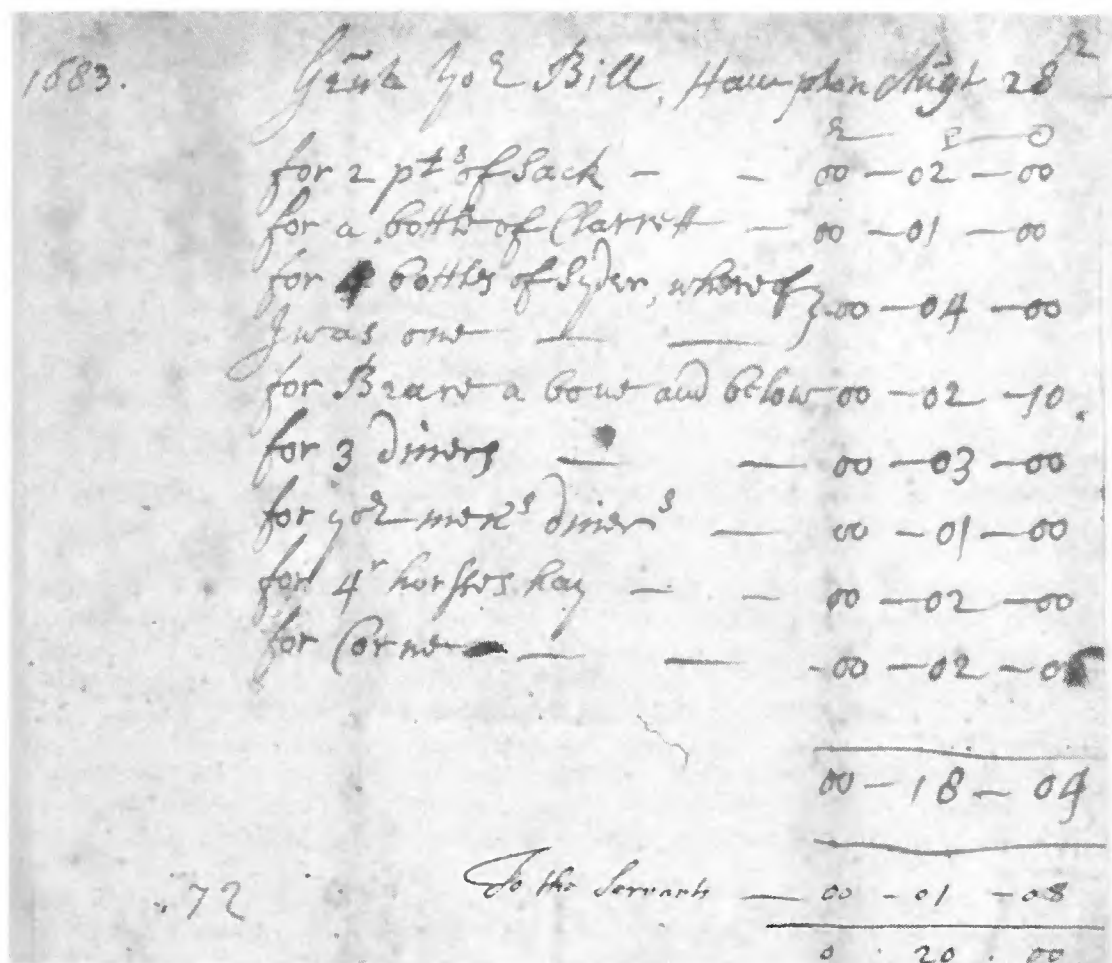 1683. yor Bill, Hampton Augt 28
for 2 pts of Sack — — 00 — 02 — 00
for a bottle of Clarrett — 00 — 01 — 00
for 4 bottles of Syder, whereof
I was one — — 00 — 04 — 00
for Beare a bove and below 00 — 02 — 10
for 3 diners — — 00 — 03 — 00
for yor mens diners — 00 — 01 — 00
for 4r horsses hay — — 00 — 02 — 00
for Corne — — 00 — 02 —
00 — 18 — 04
To the Servants — 00 - 01 - 08
72
0 . 20 . 00